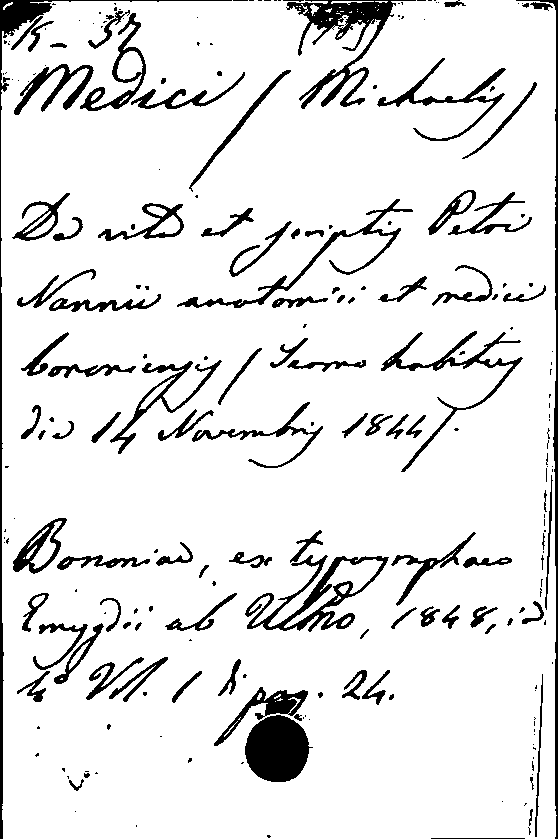 K – 57 (18)
Medici (Michaelis)
De vita et scriptis Petri
Nannii anatomici et medici
bononiensis (Sermo habitus
die 14 Novembris 1844).
Bononiae, ex typographaeo
Emygdii ab Ulmo, 1848, in
4° Vol. 1 di pag. 24.